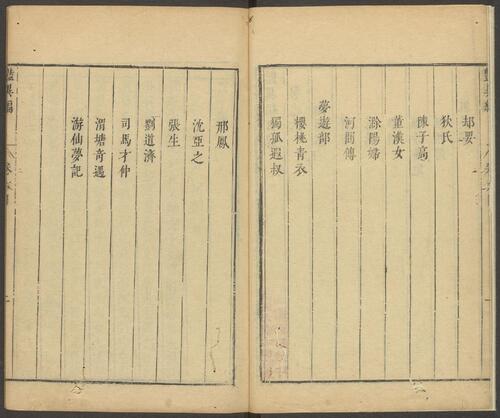 却要
狄氏
陳子高
董漢女
滁陽婦
河間傳
夢遊部
櫻桃青衣
獨孤遐叔
邢鳳
沈亞之
張生
劉道濟
司馬才仲
渭塘奇遇
游仙夢記